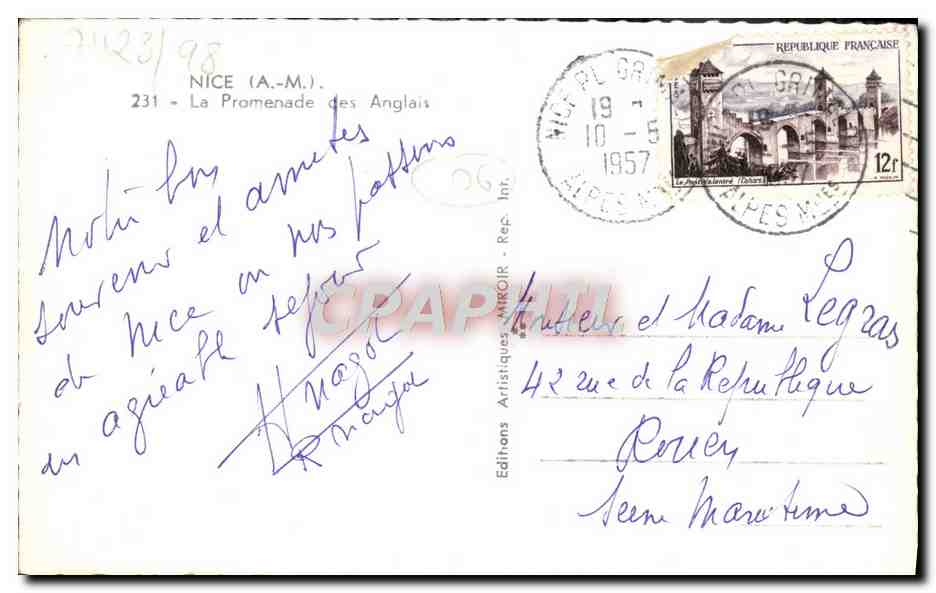 7423/98
NICE (A.-M.).
231 - La Promenade des Anglais
Notre bon
souvenir et amitiés
de Nice ou nous passons
un agréable séjour
HNagol
RNagol
06
Editions Artistiques MIROIR - Rep. Int.
NICE PL GRIM
19 -
10 - 5
1957
ALPES M
REPUBLIQUE FRANÇAISE
POSTES
12f
Le Pont Valentré (Cahors)
PL GRIM
ALPES Mmes
CPAPHIL
Monsieur et Madame Legras
42 rue de la République
Rouen
Seine Maritime